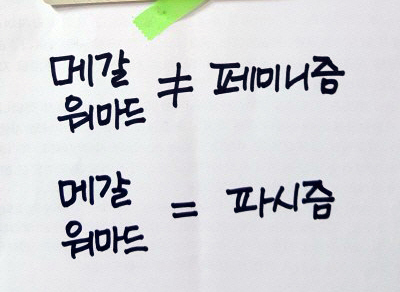 메갈
워마드 ≠ 페미니즘
메갈
워마드 = 파시즘